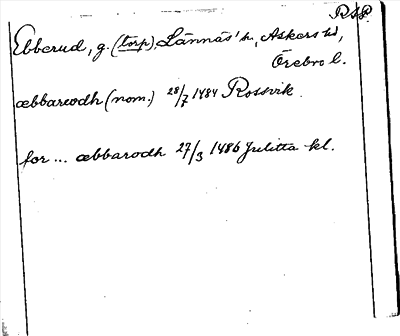 RAP.
Ebberud, g. (torp), Lännäs sn, Askers hd,
Örebro l.
æbbarwdh (nom.) 28/7 1484 Rossvik.
for ... æbbarodh 27/3 1486 Julitta kl.